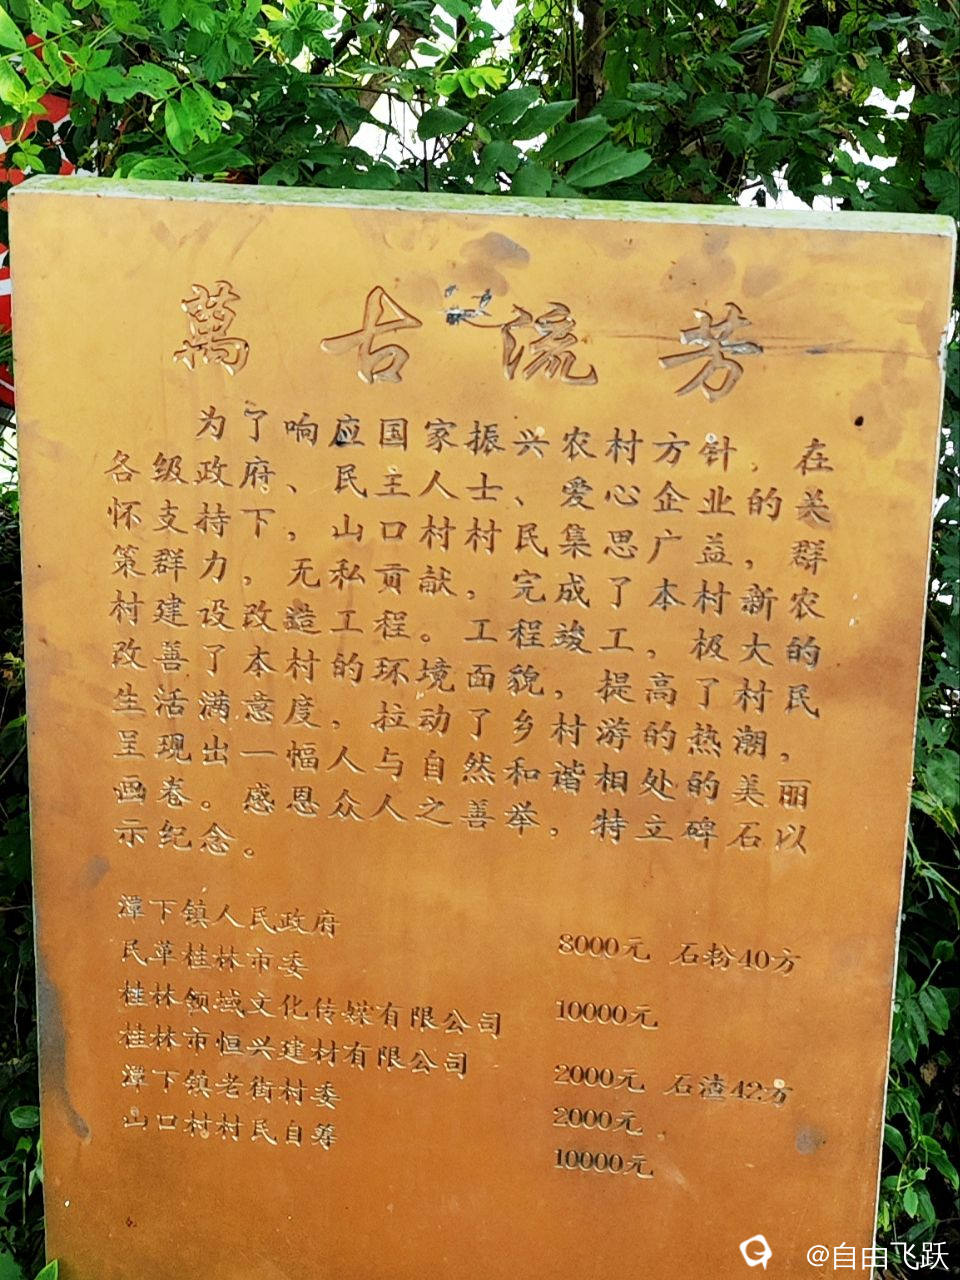 萬古流芳
为了响应国家振兴农村方针，在
各级政府、民主人士、爱心企业的关
怀支持下，山口村村民集思广益，群
策群力，无私贡献，完成了本村新农
村建设改造工程。工程竣工，极大的
改善了本村的环境面貌，提高了村民
生活满意度，拉动了乡村游的热潮，
呈现出一幅人与自然和谐相处的美丽
画卷。感恩众人之善举，特立碑石以
示纪念。
潭下镇人民政府 8000元 石粉40方
民革桂林市委 10000元
桂林领域文化传媒有限公司
桂林市恒兴建材有限公司 2000元 石渣42方
潭下镇老街村委 2000元
山口村村民自筹 10000元
@自由飞跃